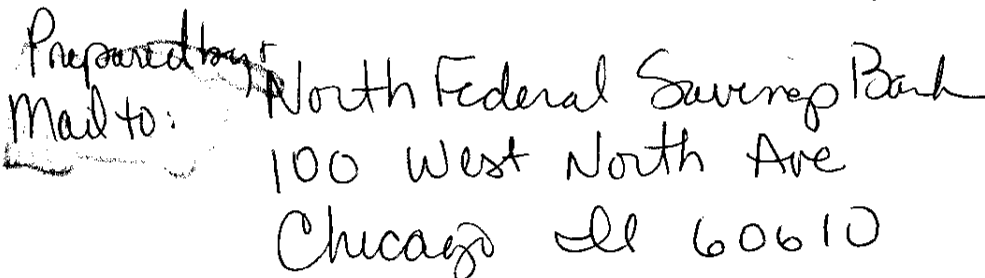 Prepared by:
Mail to: North Federal Savings Bank
100 West North Ave
Chicago Ill 60610